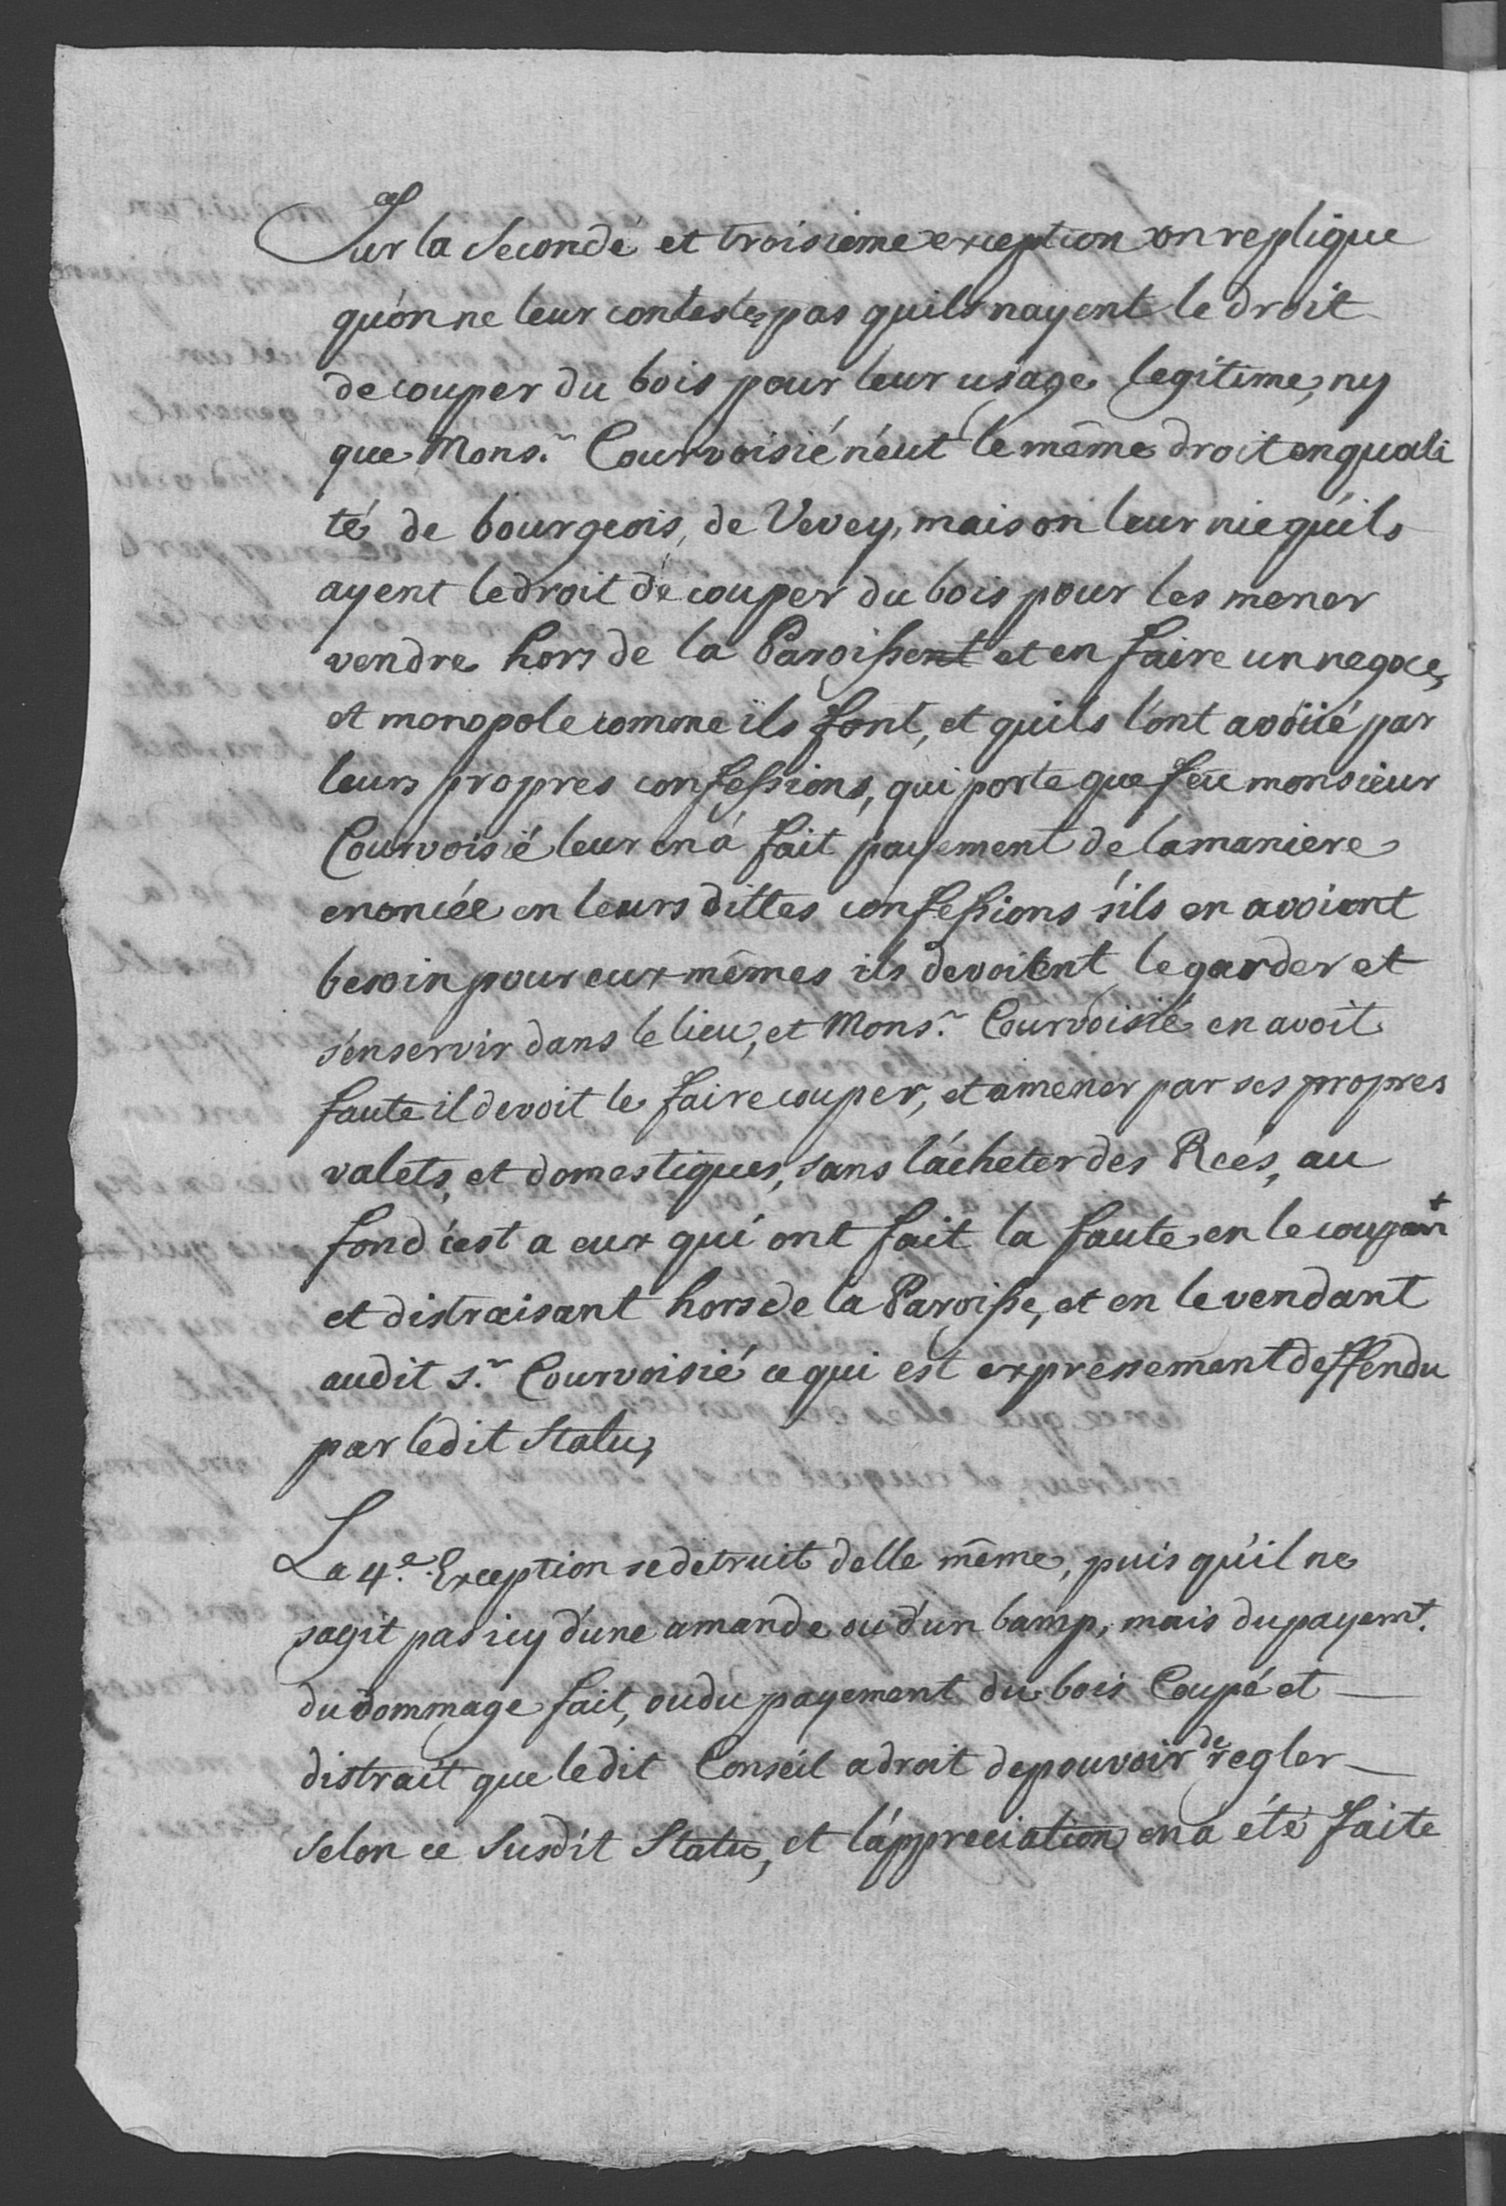 Sur la Seconde et troisieme exception on replique
qu'on ne leur conteste pas quils nayent le droit
de couper du bois pour leur usage legitime, ny
que Mons.r Courvoisié n'eut le même droit en quali
té de bourgeois, de Vevey, mais on leur nie qu'ils
ayent le droit de couper du bois pour les mener
vendre hors de la Paroisse et en faire un negoce,
et monopole comme ils font, et quils l'ont avoüé par
leurs propres confessions, qui porte que feu monsieur
Courvoisié leur en à fait payement de la maniere
enoncée en leurs dittes confessions s'ils en avoient
besoin pour eux mêmes ils devoient le garder et
s'en servir dans le lieu, et Mons.r Courvoisié en avoit
faute il devoit le faire couper, et amener par ses propres
valets, et domestiques, sans l'acheter des Rées, au
fond c'est a eux qui ont fait la faute en le coupant
et distraisant hors de la Paroisse, et en le vendant
audit s.r Courvoisié ce qui est expressement deffendu
par ledit Statu,
La 4.e Exception se detruit delle même, puis qu'il ne
sagit pas icy d'une amande ou d'un bamp, mais du payemt.
du dommage fait, ou du payement du bois Coupé et —
distrait que ledit Conseil a droit de pouvoir de regler —
selon ce susdit Statu, et l'appreciation en a été faite